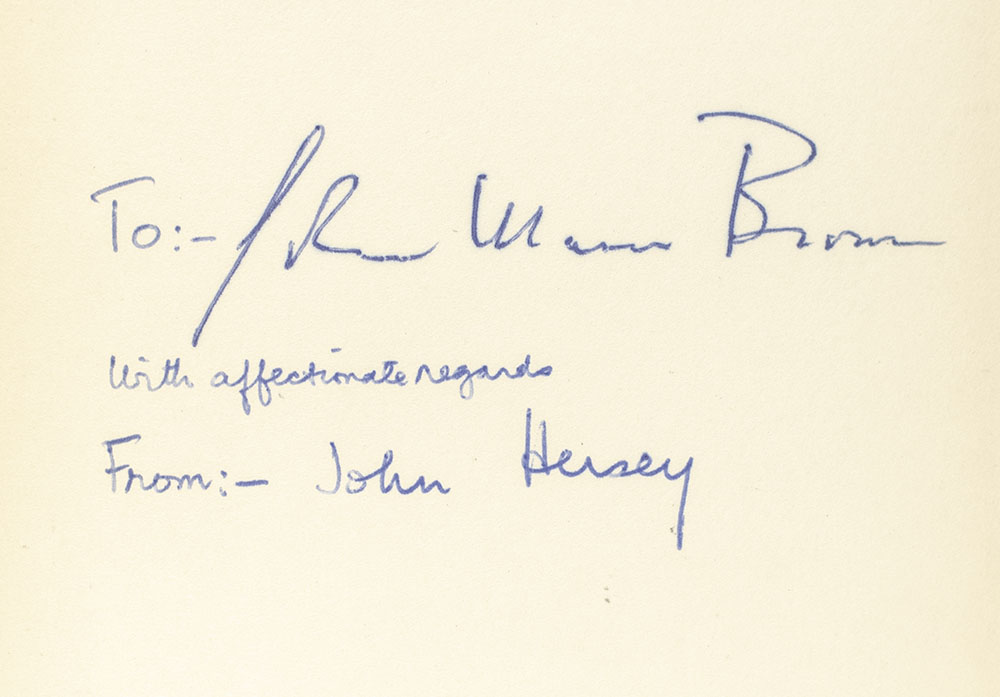 To:- John Mason Brown
With affectionate regards
From:- John Hersey